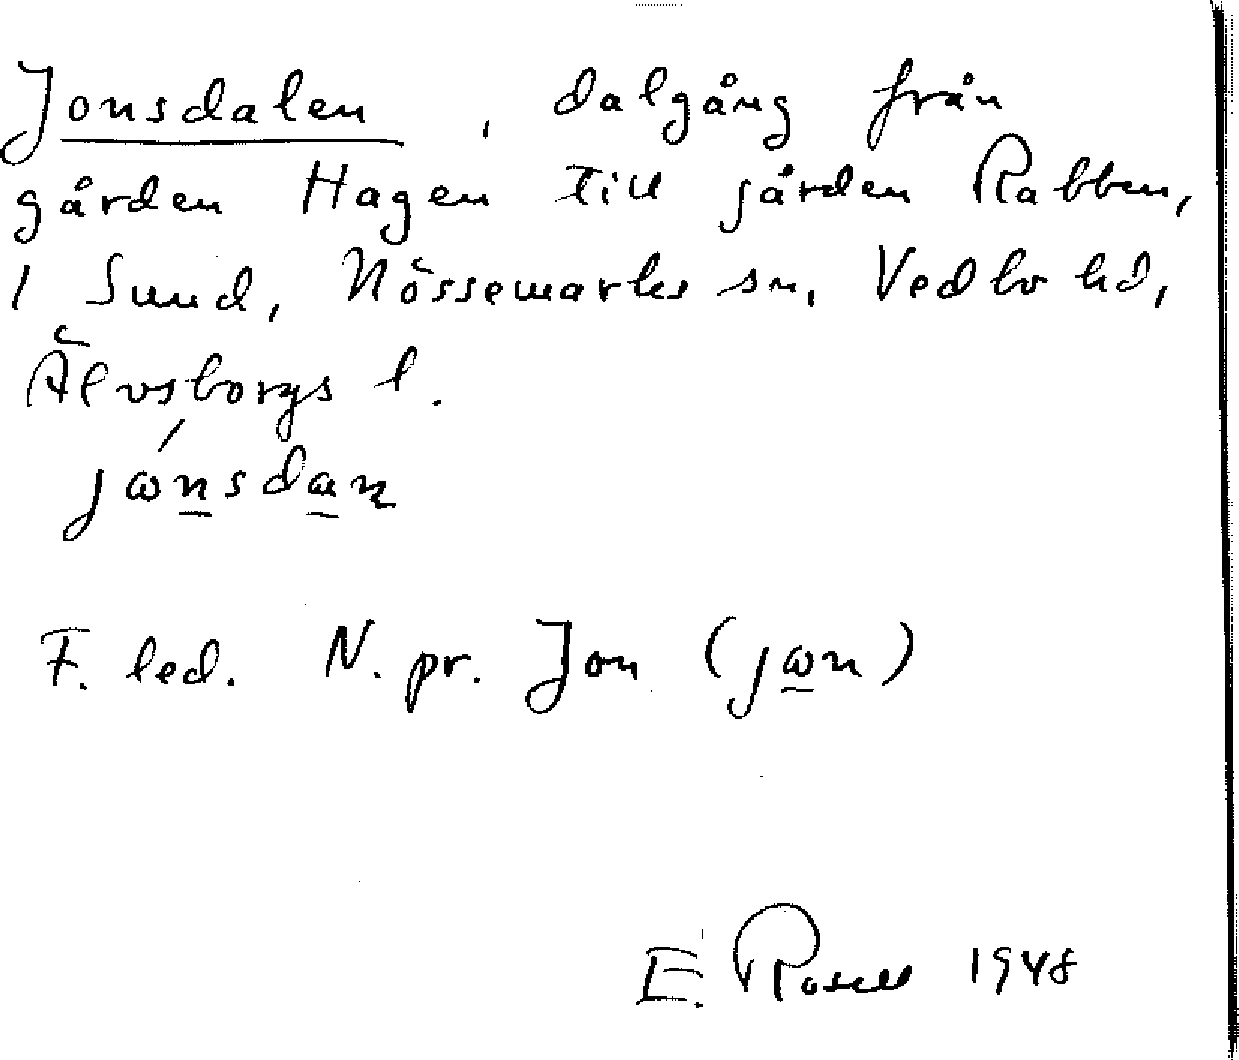 Jonsdalen, dalgång från
gården Hagen till gården Rabben,
i Sund, Nössemarks sn, Vedbo hd,
Älvsborgs l.
jɷ́nsdan
F. led. N. pr. Jon (jɷn)
E. Rosell 1948